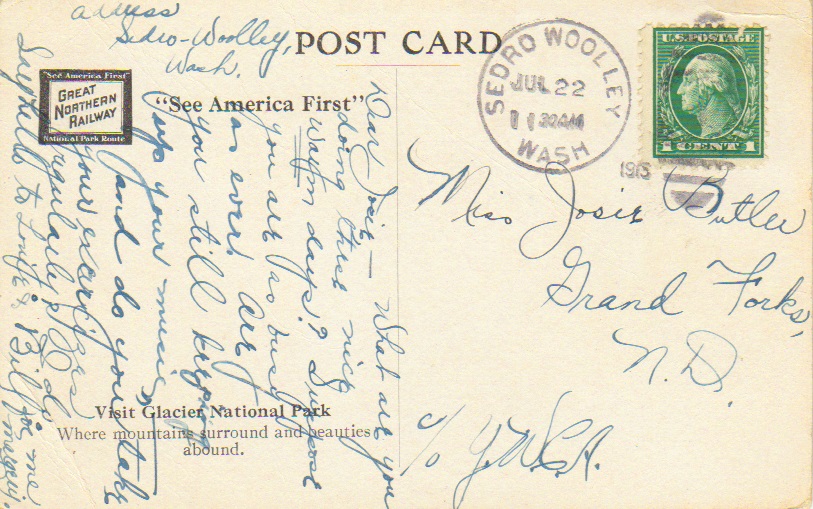 address
Sedro-Woolley,
Wash.
POST CARD
"See America First"
GREAT
NORTHERN
RAILWAY
National Park Route
"See America First"
SEDRO WOOLLEY
JUL 22
11 30AM
1915
WASH
U.S. POSTAGE
1 CENT 1
Dear Josie — What are you
doing these nice
warm days? Suppose
you are as busy
as ever. Are
you still keeping
up your music
and do you take
your exercises
regularly? Do
Say hello to & Bill for me
Miss Josie Butler
Grand Forks,
N.D.
c/o Y.W.C.A.
Visit Glacier National Park
Where mountains surround and beauties
abound.